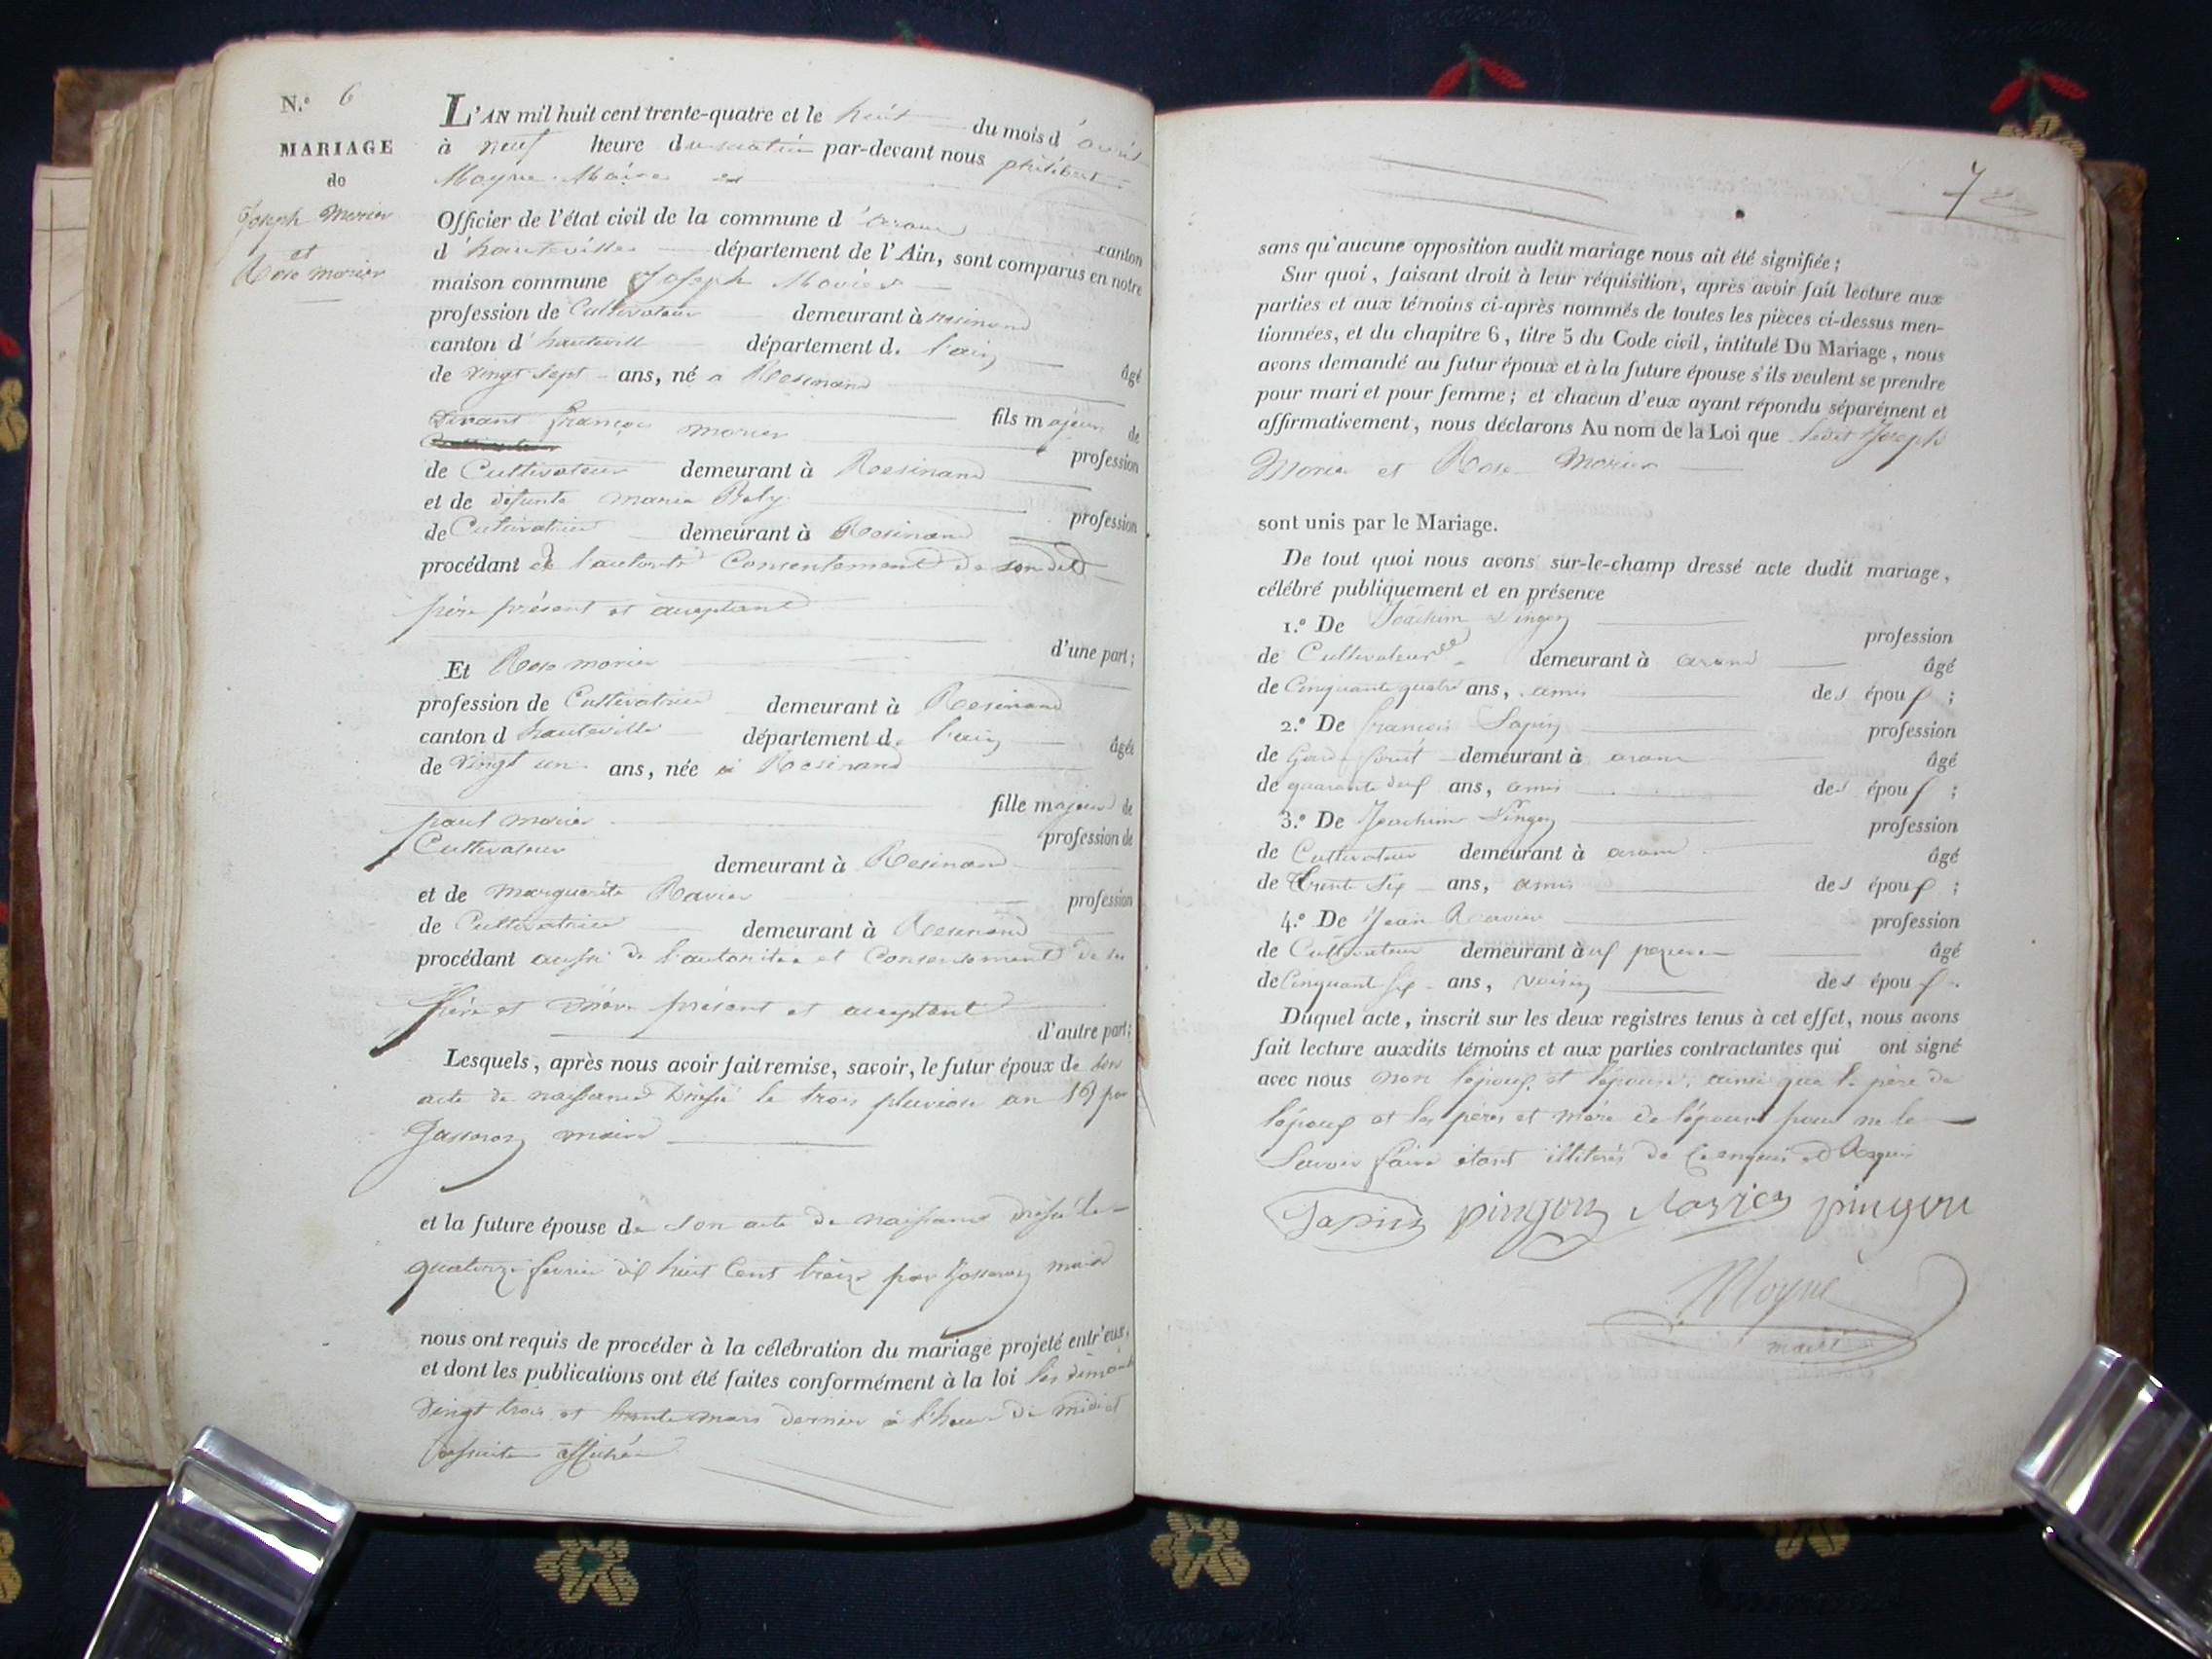 N.º 6
MARIAGE
de
Joseph Morier
et
Rose morier
L'AN mil huit cent trente-quatre et le huit du mois d'avril
à neuf heure du matin par-devant nous philibert
Moyne Maire
Officier de l'état civil de la commune d'aranc canton
d'hauteville département de l'Ain, sont comparus en notre
maison commune Joseph Morier
profession de Cultivateur demeurant à resinand
canton d'hauteville département d. l'ain âgé
de vingt sept ans, né a Resinand
fils majeur de
vivant françois morier profession
de Cultivateur demeurant à Resinand
et de defunte maria Rely profession
de Cultivatrice demeurant à Resinand
procédant de l'autorité Consentement de son dit
père présent et acceptant
d'une part;
Et Rose morier
profession de Cultivatrice demeurant à Resinand
canton d hauteville département d. l'ain âgée
de vingt un ans, née à Resinand
fille majeure de
paul morier profession de
Cultivateur demeurant à Resinand
et de marguerite Ravier profession
de Cultivatrice demeurant à Resinand
procédant aussi de l'autorité et Consentement de ses
père et mère présent et acceptant
d'autre part;
Lesquels, après nous avoir fait remise, savoir, le futur époux de son
acte de naissance Dressé le trois pluviose an par
Jasseron maire
et la future épouse de son acte de naissance dressé le
quatorze fevrier dix huit Cent treize par Jasseron maire
nous ont requis de procéder à la célébration du mariage projeté entr'eux,
et dont les publications ont été faites conformément à la loi les dimanche
vingt trois et trente mars dernier à l'heure de midi et
ensuite affichée
7
sans qu'aucune opposition audit mariage nous ait été signifiée;
Sur quoi, faisant droit à leur réquisition, après avoir fait lecture aux
parties et aux témoins ci-après nommés de toutes les pièces ci-dessus men-
tionnées, et du chapitre 6, titre 5 du Code civil, intitulé Du Mariage, nous
avons demandé au futur époux et à la future épouse s'ils veulent se prendre
pour mari et pour femme; et chacun d'eux ayant répondu séparément et
affirmativement, nous déclarons Au nom de la Loi que ledit Joseph
Morier et Rose Morier
sont unis par le Mariage.
De tout quoi nous avons sur-le-champ dressé acte dudit mariage,
célébré publiquement et en présence
1.º De Joachim Pingon profession
de Cultivateur demeurant à aranc âgé
de Cinquante quatre ans, amis des époux;
2.º De françois Sapin profession
de Garde foret demeurant à aranc âgé
de quarante deux ans, amis des époux;
3.º De Joachim Pingon profession
de Cultivateur demeurant à aranc âgé
de trente six ans, amis des époux;
4.º De Jean Ravier profession
de Cultivateur demeurant à âgé
de Cinquante six ans, voisin des époux.
Duquel acte, inscrit sur les deux registres tenus à cet effet, nous avons
fait lecture auxdits témoins et aux parties contractantes qui ont signé
avec nous non l'époux et l'épouse, ainsi que le père de
l'époux et les pères et mère de l'épouse pour ne le
savoir faire étant illiterés de Ce enquis et Requis
Sapin pingon Ravier pingon
Moyne
maire